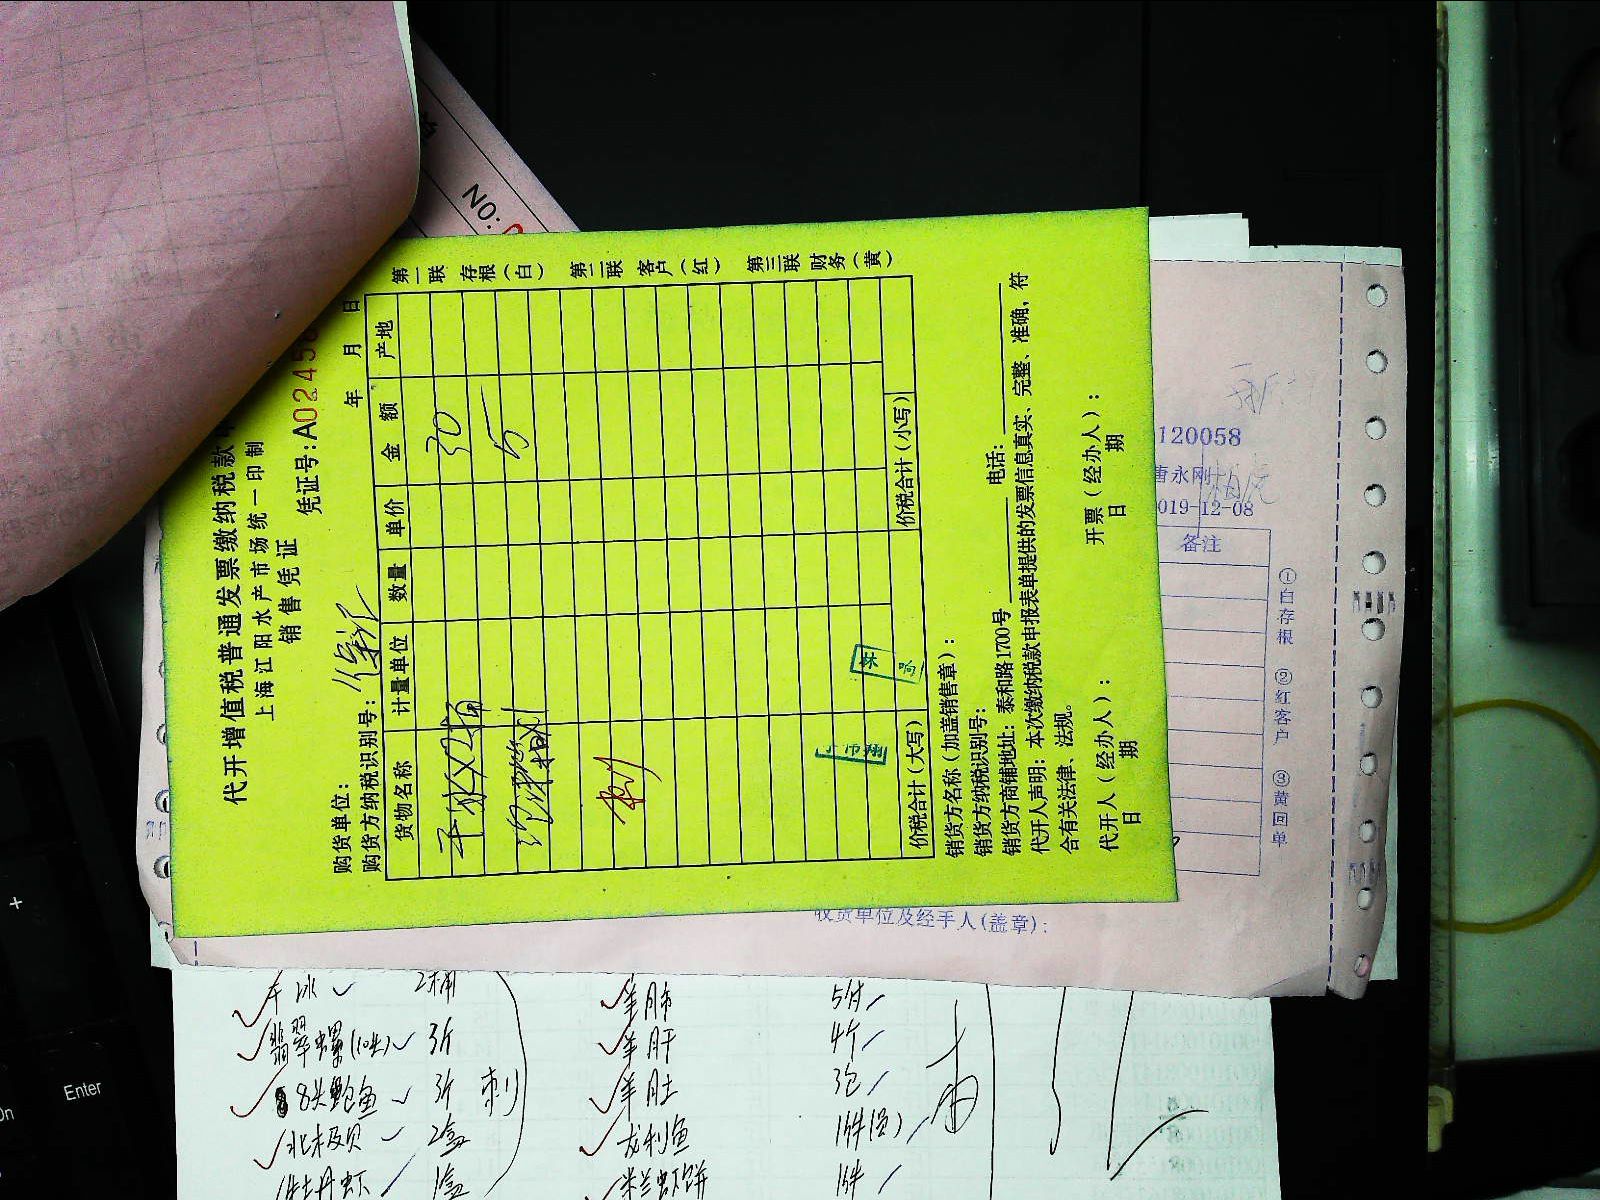 NO:
代开增值税普通发票缴纳税款
上海江阳水产市场统一印制
销售凭证
凭证号:A0245
年 月 日
购货单位:
购货方纳税识别号:
货物名称 计量单位 数量 单价 金额 产地
干冰X2桶 30
5
价税合计(大写) 价税合计(小写)
第一联 存根(白) 第二联 客户(红) 第三联 财务(黄)
销货方名称(加盖销售章):
销货方纳税识别号:
销货方商铺地址:泰和路1700号 电话:
代开人声明:本次缴纳税款申报表单提供的发票信息真实、完整、准确,符
合有关法律、法规。
代开人(经办人): 开票(经办人):
日 期 日 期
120058
唐永刚
019-12-08
备注
①白存根 ②红客户 ③黄回单
收货单位及经手人(盖章):
干冰 2桶
翡翠螺(10头) 3斤
8头鲍鱼 3斤 刺
北极贝 2盒
牡丹虾 1盒
羊肺 5付
羊肝 4个
羊肚 3包
龙利鱼 1件
虾饼 1件
Enter
+